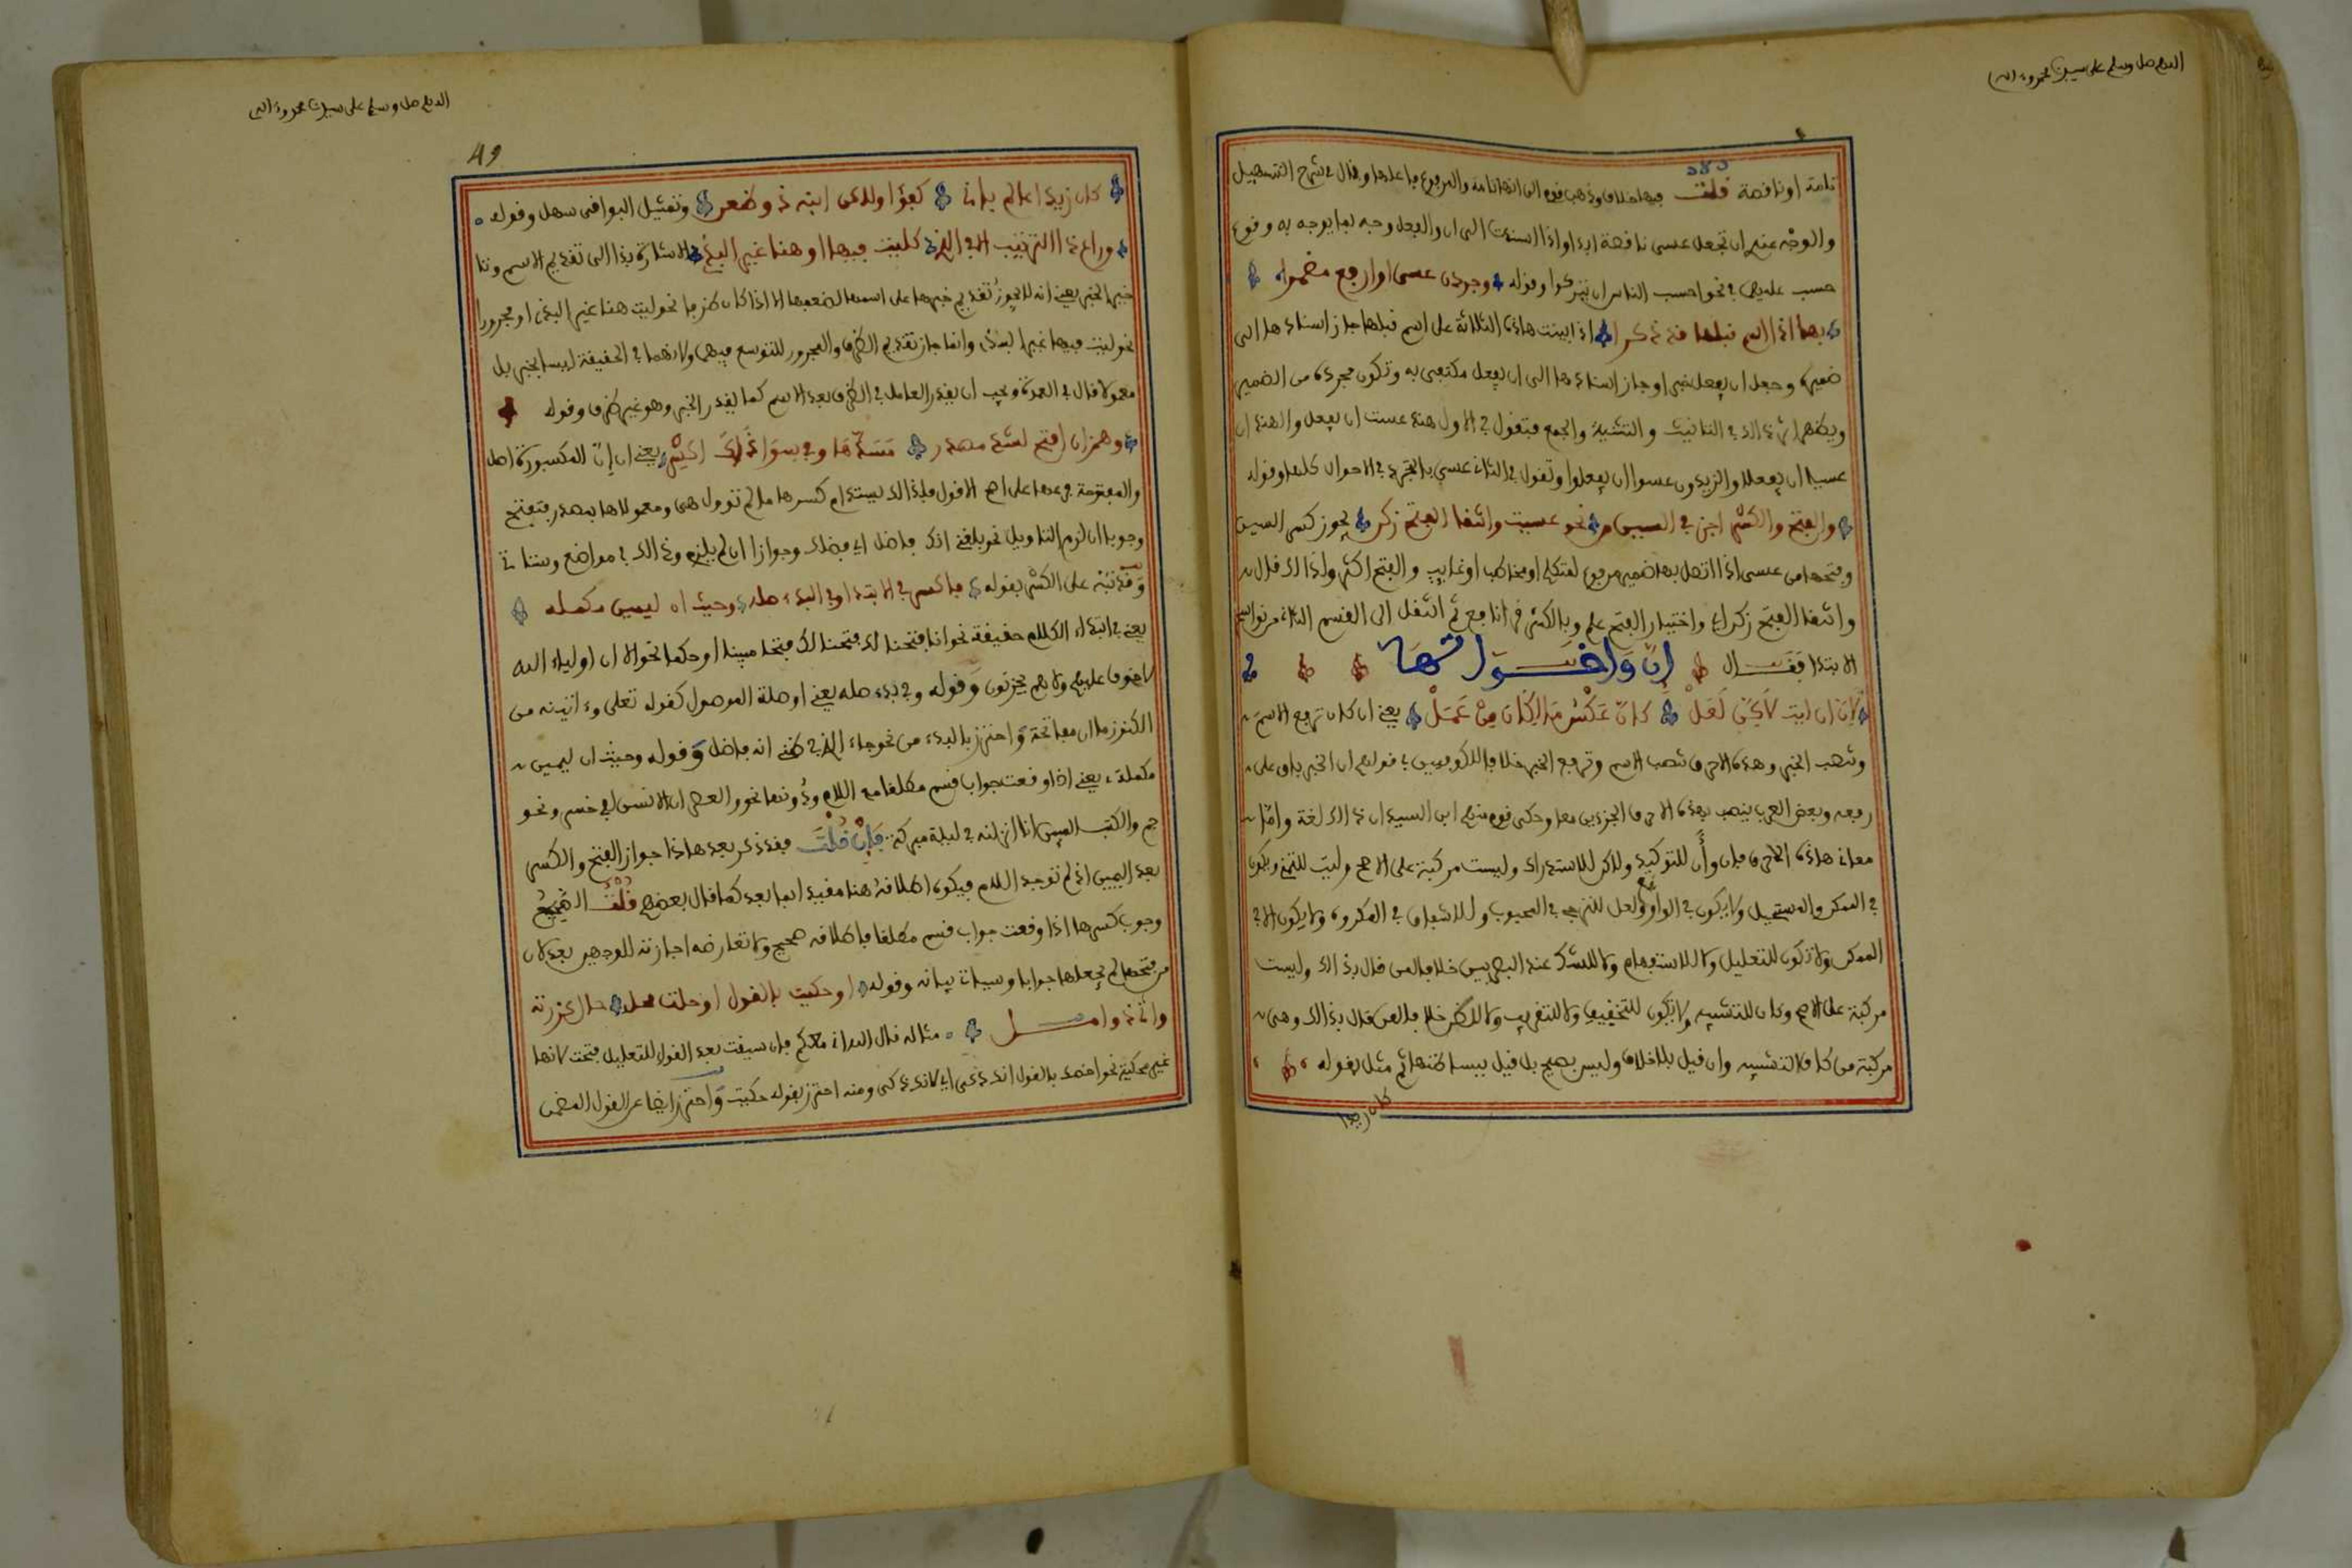 اللهم صل وسلم على سيدنا محمد وءاله
تامة او ناقصة قلت فيها خلاف وذهب قوم الى انها تامة والمرفوع فاعلها وقال في شرح التسهيل
والوجه عندي ان تجعل عسى ناقصة ابدا واذا اسندت الى ان والفعل وجه بما يوجه به وقوع
حسب عليهما في نحو احسب الناس ان يتركوا وقوله وجردن عسى او ارفع مضمرا
بها اذا اسم قبلها قد ذكرا اذا بنيت هاذه الثلاثة على اسم قبلها جاز اسنادها الى
ضميره وجعل ان يفعل خبرا وجاز اسنادها الى ان يفعل مكتفى به وتكون مجردة من الضمير
ويظهر اثر ذالك في التانيث والتثنية والجمع فتقول في الاول هند عست ان تفعل والهندان
عسيا ان يفعلا والزيدون عسوا ان يفعلوا وتقول في الثاني عسى بالتجريد في الاحوال كلها وقوله
والفتح والكسر اجز في السين من نحو عسيت وانتقا الفتح زكن يجوز كسر السين
وفتحها من عسى اذا اتصل بها ضمير مرفوع لمتكلم او مخاطب او غايب والفتح اكثر ولذالك قال
وانتقا الفتح زكن اي واختيار الفتح علم وبالكسر قرا نافع ثم انتقل الى القسم الثاني من نواسخ
الابتدا فقال ان واخواتها
لان ان ليت لاكن لعل كان عكس ما لكان من عمل يعني ان كان ترفع الاسم
وتنصب الخبر وهذه الاحرف تنصب الاسم وترفع الخبر خلافا للكوفيين في قولهم ان الخبر باق على
رفعه وبعض العرب ينصب بهذه الاحرف الجزءين معا وحكى قوم منهم ابن السيد ان ذالك لغة واما
معاني هاذه الاحرف فان وأن للتوكيد ولاكن للاستدراك وليست مركبة على الاصح وليت للتمني ويكون
في الممكن والمستحيل ولا يكون في الواجب ولعل للترجي في المحبوب وللاشفاق في المكروه ولا يكون الا في
الممكن ولا تكون للتعليل ولا للاستفهام ولا للشك عند البصريين خلافا لمن قال بذالك وليست
مركبة على الاصح وكان للتشبيه ولا يكون للتحقيق ولا للتقريب ولا للظن خلافا لمن قال بذالك وهي
مركبة من كاف التشبيه وان قيل بلا خلاف وليس بصحيح بل قيل ببساطتها ثم مثل بقوله
كان زيدا
اللهم صل وسلم على سيدنا محمد وءاله
49
كان زيدا عالم باني كفؤ ولاكن ابنه ذو ضغن وتمثيل البواقي سهل وقوله
وراع ذا الترتيب الا في الذي كليت فيها او هنا غير البذي الاشارة بذا الى تقديم الاسم وتاخير
خبرها الخبر يعني انه لا يجوز تقديم خبرها على اسمها لضعفها الا اذا كان ظرفا نحو ليت هنا غير البذي او مجرورا
نحو ليت فيها غير البذي وانما جاز تقديم الظرف والمجرور للتوسع فيهما ولانهما في الحقيقة ليسا بخبر بل
معمولا قال في العمدة ويجب ان يقدر العامل في الظرف بعد الاسم كما يقدر الخبر وهو غير ظرف وقوله
وهمز ان افتح لسد مصدر مسدها وفي سوى ذاك اكسر يعني ان ان المكسورة اصل
والمفتوحة فرعها على اصح الاقوال فلذالك يستدام كسرها ما لم تؤول هي ومعمولاها بمصدر فتفتح
وجوبا ان لزم التاويل نحو بلغني انك فاضل اي فضلك وجوازا ان لم يلزم وذالك في مواضع وستاتي
وقد نبه على الكسر بقوله فاكسر في الابتدا وفي بدء صله وحيث ان ليمين مكمله
يعني في ابتداء الكلام حقيقة نحو انا فتحنا لك فتحا مبينا او حكما نحو الا ان اولياء الله
لا خوف عليهم ولا هم يحزنون وقوله وفي بدء صله يعني او صلة الموصول كقوله تعلى وءاتينه من
الكنوز ما ان مفاتحه واحترز بالبدء من نحو جاء الذي في ظني انه فاضل وقوله وحيث ان ليمين
مكمله يعني اذا وقعت جواب قسم مطلقا مع اللام ودونها نحو والعصر ان الانسن لفي خسر ونحو
حم والكتب المبين انا انزلنه في ليلة مبركة فان قلت فقد ذكر بعد هاذا جواز الفتح والكسر
بعد اليمين اذا لم توجد اللام فيكون اطلاقه هنا مقيدا بما بعد كما قال بعضهم قلت الصحيح
وجوب كسرها اذا وقعت جواب قسم مطلقا فاطلاقه صحيح ولا تعارضه اجازته للوجهين بعد لان
من فتحها لم يجعلها جوابا وسياتي بيانه وقوله او حكيت بالقول او حلت محل حال كزرته
واني ذو امل مثاله قال الله اني معكم فان سيقت بعد القول للتعليل فتحت لانها
غير محكية نحو اخصك بالقول انك ذكي اي لانك ذكي ومنه احترز بقوله حكيت واحترز ايضا من القول المضمن